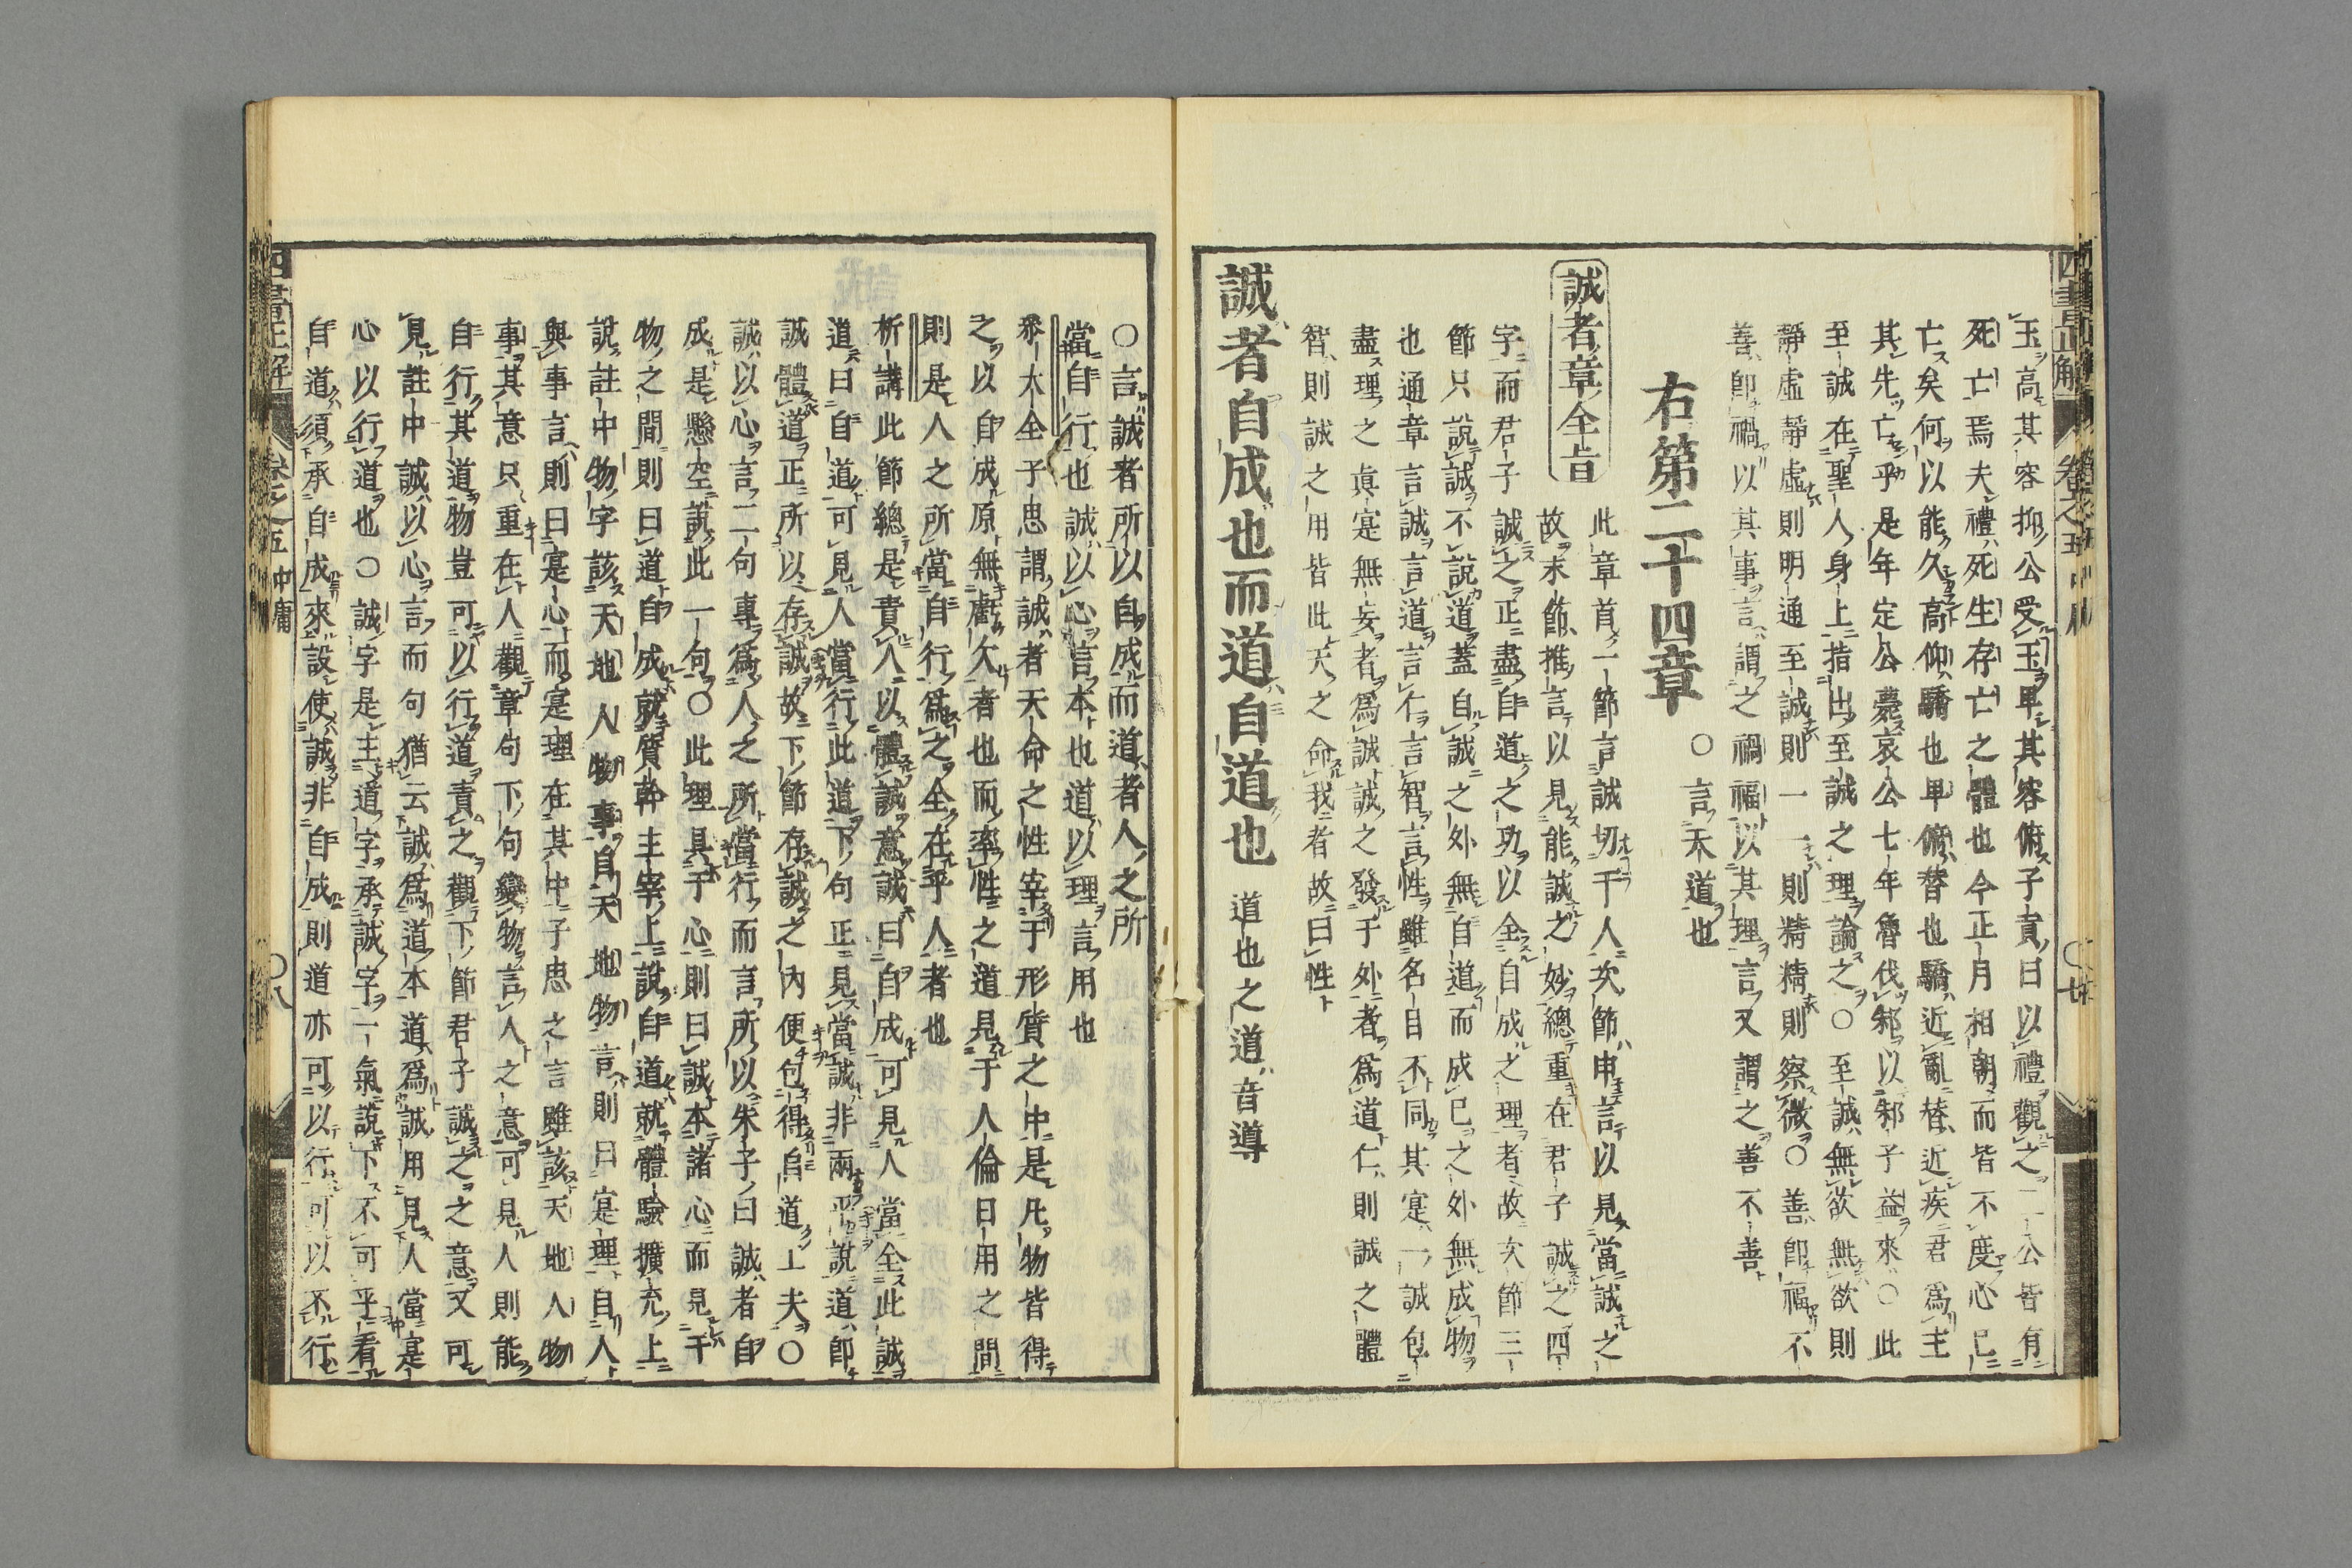 玉高其容抑公受玉卑其容俯子貢曰以禮觀之二公皆有
死亡焉夫禮死生存亡之體也今正月相朝而皆不度心已
亡矣何以能久高仰驕也卑俯替也驕近亂替近疾君爲主
其先亡乎是年定公薨哀公七年魯伐邾以邾子益來○此
至誠在聖人身上指出至誠之理論之○至誠無欲無欲則
靜虛靜虛則明通至誠則一一則精精則察微○善卽福不
善卽禍以其事言謂之禍福以其理言又謂之善不善
右第二十四章
○言天道也
誠者章全旨
此章首一節言誠切于人次節申言以見當誠之
故末節推言以見能誠之妙總重在君子誠之四
字而君子誠之正盡自道之功以全自成之理者故次節三
節只說誠不說道蓋自誠之外無自道而成己之外無成物
也通章言誠言道言仁言智言性雖名目不同其寔一誠包
盡理之眞寔無妄者爲誠誠之發于外者爲道仁則誠之體
智則誠之用皆此天之命我者故曰性
誠者自成也而道自道也 道也之道音導
四書正解
卷之五
中庸
○言誠者所以自成而道者人之所
當自行也誠以心言本也道以理言用也
參大全子思謂誠者天命之性宰于形質之中是凡物皆得
之以自成原無虧欠者也而率性之道見于人倫日用之間
則是人之所當自行爲之全在乎人者也
析講此節總是責人以體誠意誠曰自成可見人當全此誠
道曰自道可見人當行此道下句正見當誠非兩平說道卽
誠體道正所以存誠故下節存誠之內便包得自道工夫○
誠以心言二句專爲人之所當行而言所以朱子曰誠者自
成是懸空說此一句○此理具于心則曰誠本諸心而見于
物之間則曰道自成就質幹主宰上說自道就體驗擴充上
說註中物字該天地人物事自天地物言則曰寔理自人
與事言則曰寔心而寔理在其中子思之言雖該天地人物
事其意只重在人觀章句下句變物言人之意可見人則能
自行其道物豈可以行道責之觀下節君子誠之之意又可
見註中誠以心言而句猶云誠爲道本道爲誠用見人當寔
心以行道也○誠字是主道字承誠字一氣說下不可乎看
自道須承自成來設使誠非自成則道亦可以行可以不行
四書正解
卷之五
中庸
○八